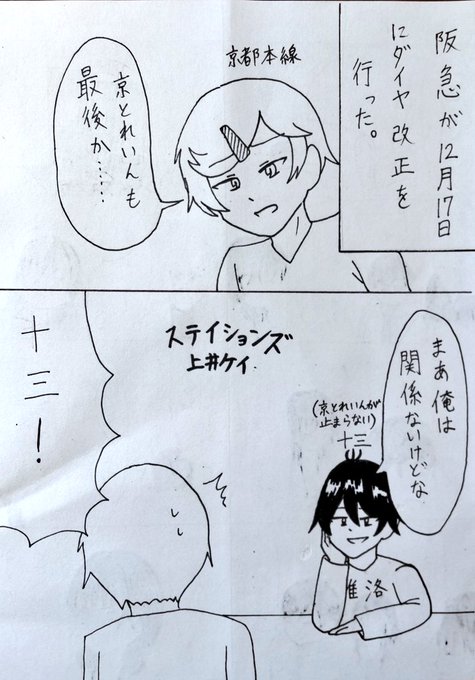 阪急が12月17日
にダイヤ改正を
行った。
京都本線
京とれいんも
最後か……
ステイションズ
上井ケイ
まあ俺は
関係ないけどな
(京とれいんが
止まらない)
十三
十三!
隹洛